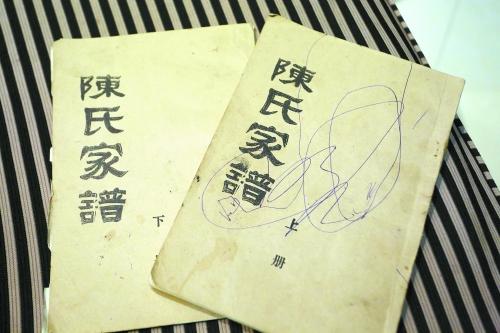 陳氏家譜
下
陳氏家譜
上册